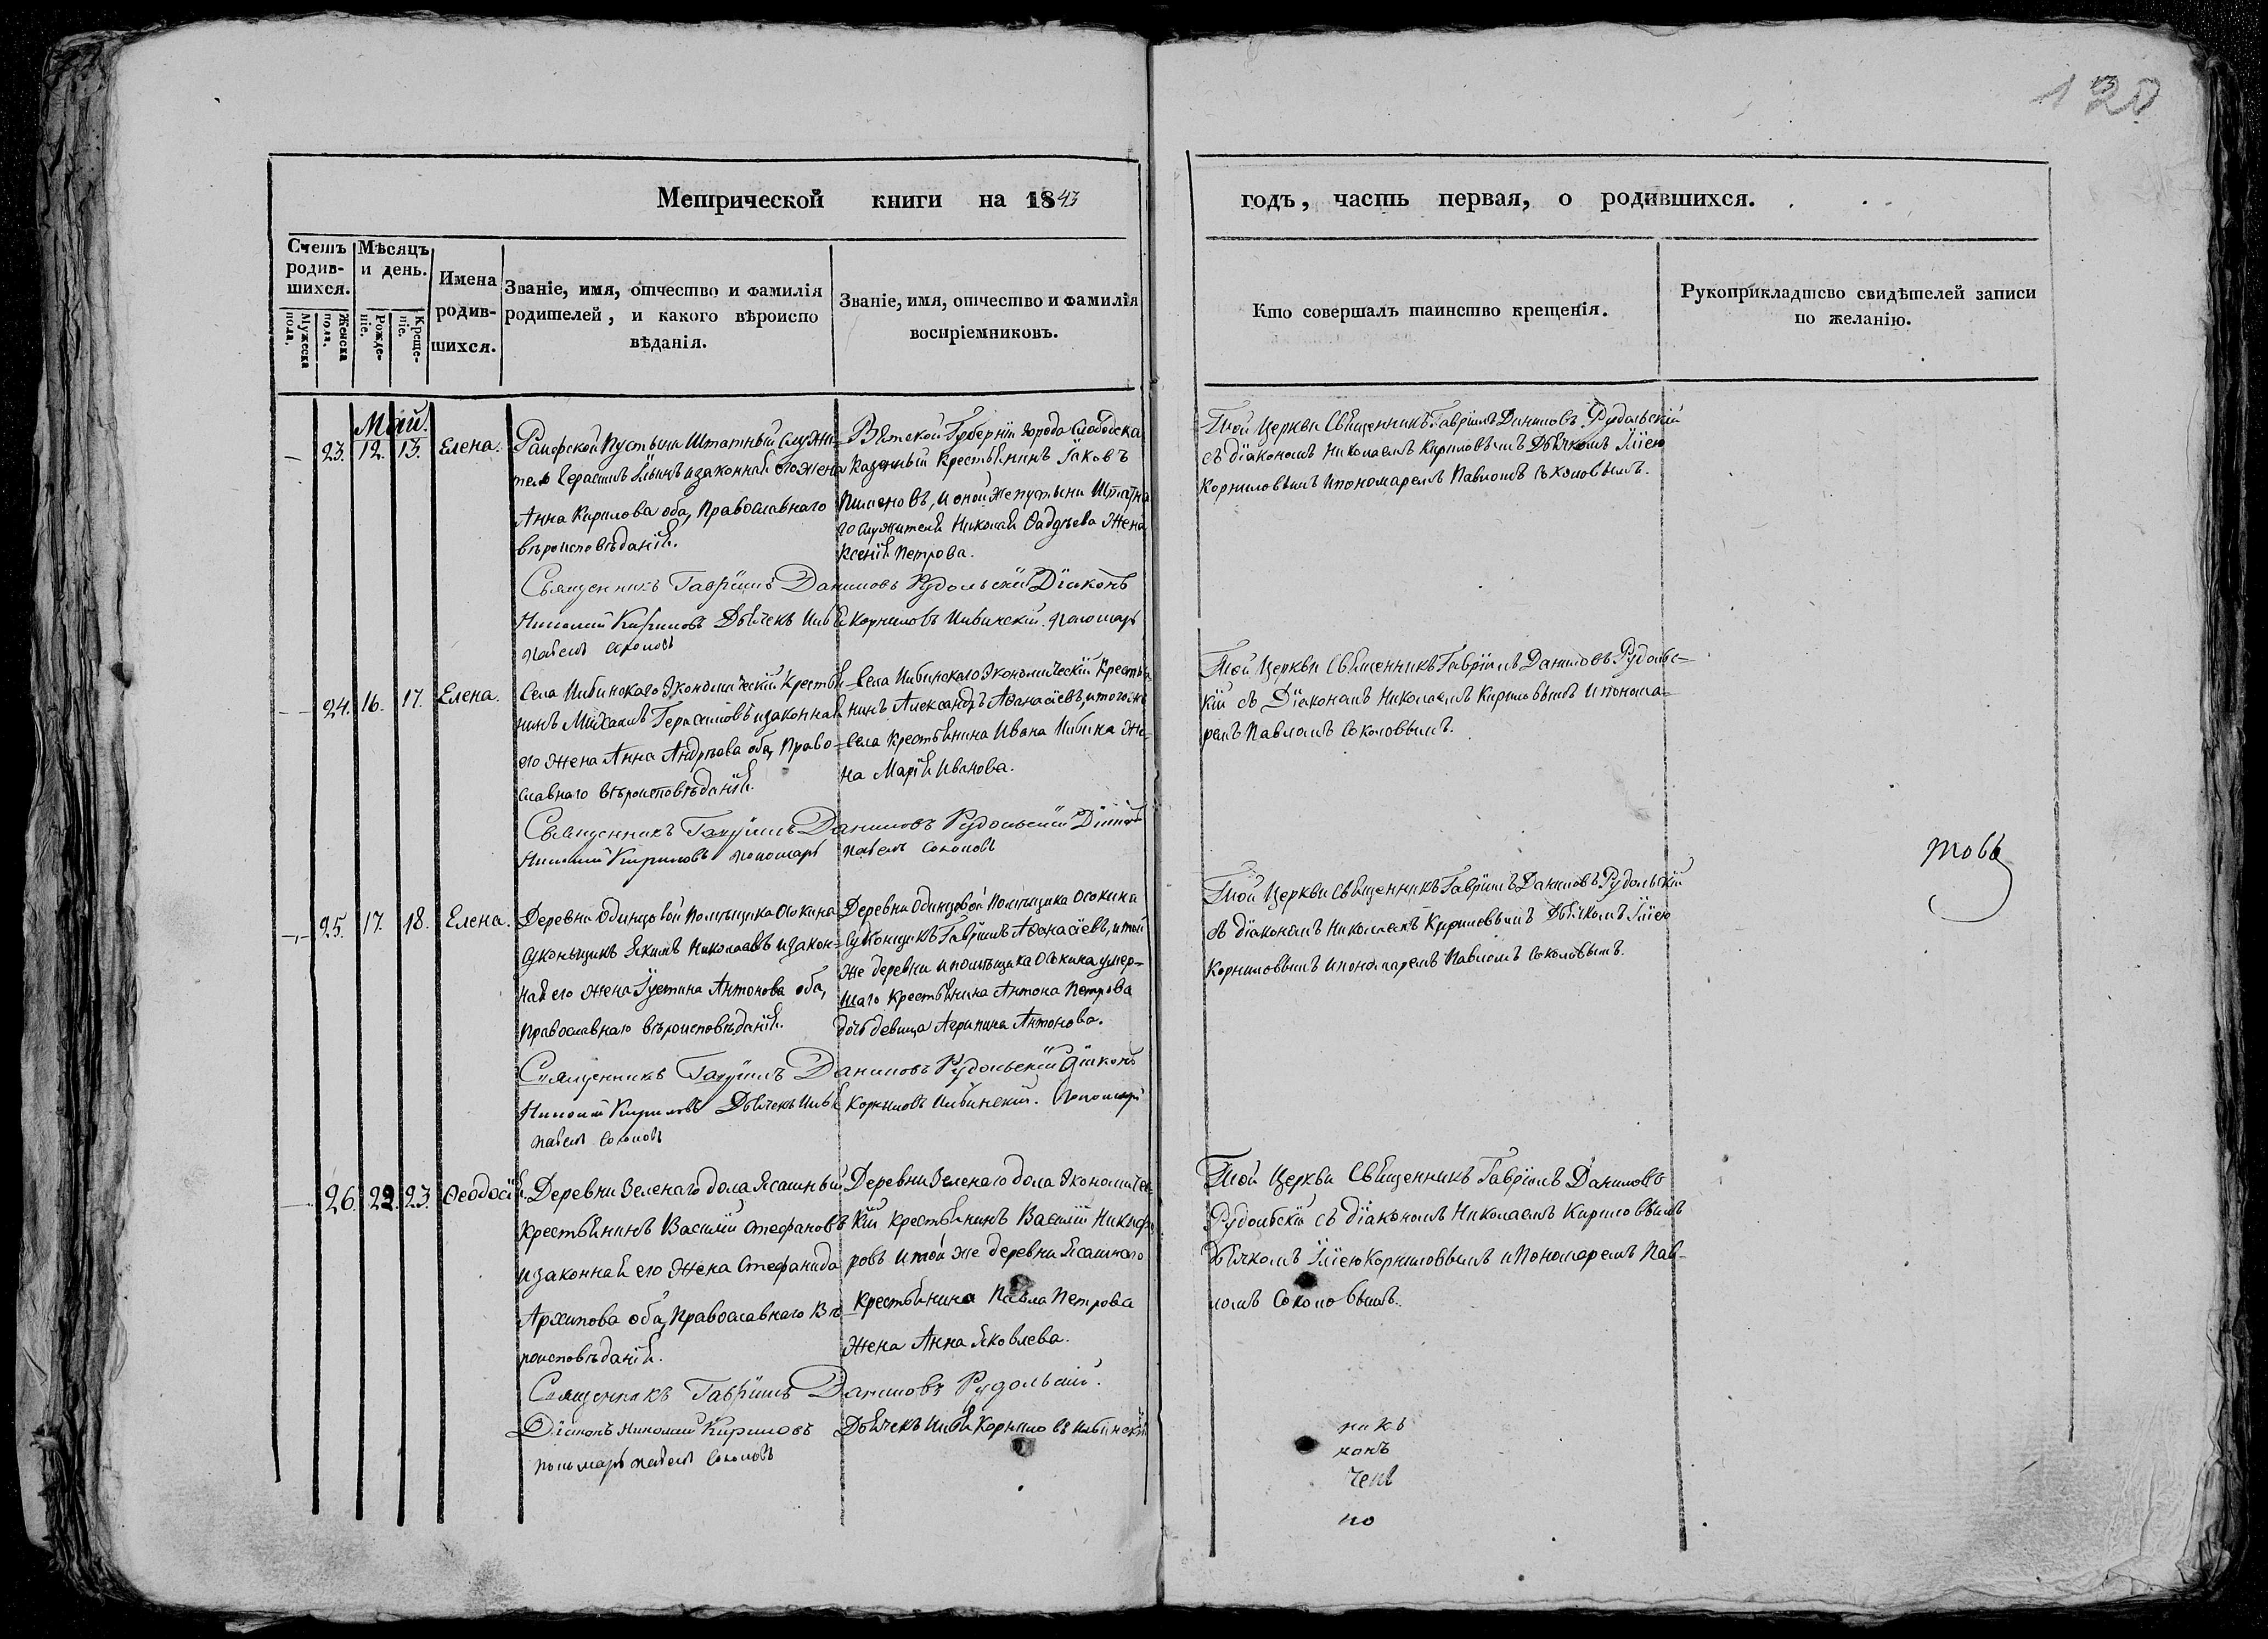 120
Метрической книги на 1843
годъ, часть первая, о родившихся.
Счетъ родив-шихся.
Мужеска пола.
Женска пола.
Мѣсяцъ и день.
Рожде-ніе.
Креще-ніе.
Имена родив-шихся.
Званіе, имя, отчество и фамилія
родителей, и какого вѣроиспо
вѣданія.
Званіе, имя, отчество и фамилія
воспріемниковъ.
Кто совершалъ таинство крещенія.
Рукоприкладтсво свидѣтелей записи
по желанію.
Май.
23. 12. 13. Елена.
Раифской Пустыни Штатный служи-
тель Герасимъ Ильинъ и законная его жена
Анна Кирилова оба, Православнаго
вѣроисповѣданія.
Вятской Губерніи города Слободска
Казенный Крестьянинъ Іаковъ
Пименовъ, и оной же пустыни Штатна
го служителя Николая Фадѣева Жена
Ксенія Петрова.
Той Церкви Священникъ Гавріилъ Даниловъ Рудольскій
съ діакономъ Николаемъ Кириловымъ Дьячкомъ Иліею
Корниловымъ и пономаремъ Павломъ Соколовымъ.
Священникъ Гавріилъ Даниловъ Рудольскій Діаконъ
Николай Кириловъ Дьячекъ Илья Корниловъ Ивинскій. Пономарь
Павелъ Соколовъ
24. 16. 17. Елена.
Села Ивинскаго Экономическій Крестья-
нинъ Михаилъ Герасимовъ и законная
его жена Анна Андрѣева оба, Право-
славнаго вѣроисповѣданія.
Села Ивинскаго Экономическій Крестья-
нинъ Александръ Афанасіевъ, и того же
села Крестьянина Ивана Ивина Же-
на Марія Иванова.
Той Церкви Священникъ Гавріилъ Даниловъ Рудольс-
кій съ Діакономъ Николаемъ Кириловымъ и понома-
ремъ Павломъ Соколовымъ.
Священникъ Гавріилъ Даниловъ Рудольскій Діаконъ
Николай Кириловъ пономарь Павелъ Соколовъ
25. 17. 18. Елена.
Деревни Одинцовой Помѣщика Осокина
Суконщикъ Якимъ Николаевъ и закон-
ная его жена Іустина Антонова оба,
Православнаго вѣроисповѣданія.
Деревни Одинцовой Помѣщика Осокина
Суконщикъ Гавріилъ Афанасіевъ, и той
же деревни и помѣщика Осокина умер-
шаго крестьянина Антона Петрова
дочь девица Агрипина Антонова.
Той Церкви Священникъ Гавріилъ Даниловъ Рудольскій
съ діакономъ Николаемъ Кириловымъ Дьячкомъ Иліею
Корниловымъ и пономаремъ Павломъ Соколовымъ.
товъ
Священникъ Гавріилъ Даниловъ Рудольскій Діаконъ
Николай Кириловъ Дьячекъ Илья Корниловъ Ивинскій. Пономарь
Павелъ Соколовъ
26. 22. 23. Феодосія.
Деревни Зеленаго дола Ясашный
Крестьянинъ Василій Стефановъ
и законная его Жена Стефанида
Архипова оба, Православнаго Вѣ-
роисповѣданія.
Деревни Зеленаго дола Экономичес-
кій Крестьянинъ Василій Никифо-
ровъ и той же деревни Ясашнаго
Крестьянина Павла Петрова
Жена Анна Яковлева.
Той Церкви Священникъ Гавріилъ Даниловъ
Рудольскій съ діакономъ Николаемъ Кириловымъ
дьячкомъ Иліею Корниловымъ и Пономаремъ Пав-
ломъ Соколовымъ.
Священникъ Гавріилъ Даниловъ Рудольскій.
Діаконъ Николай Кириловъ Дьячекъ Илья Корниловъ Ивинскій
пономарь Павелъ Соколовъ
никъ
конъ
чекъ
но